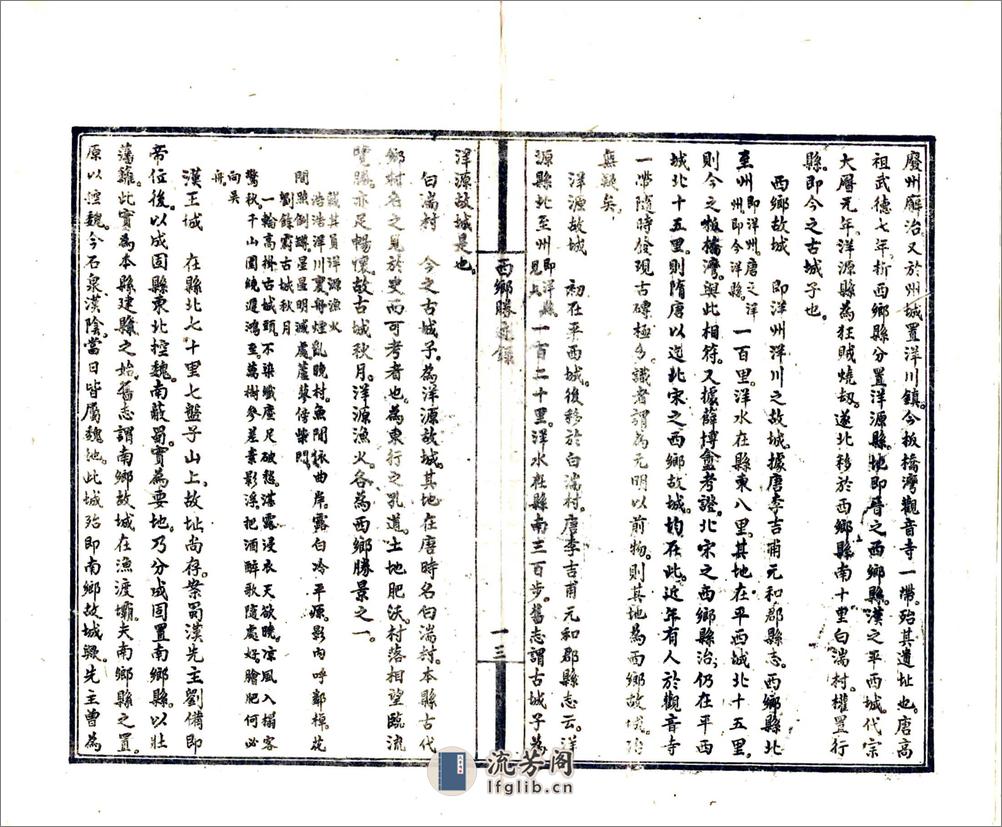 廢州廨治又於州城置洋川鎮今板橋灣觀音寺一帶。殆其遺址也。唐高
祖武德七年。析西鄉縣分置洋源縣。地即晉之西鄉縣。漢之平西城。代宗
大曆元年。洋源縣為狂賊燒刼。遂北移於西鄉縣南十里白湍村。權置行
縣。即今之古城子也。
西鄉故城 即洋州洋川之故城。據唐李吉甫元和郡縣志。西鄉縣北
至州即洋州。唐之洋州即今洋縣。一百里。洋水在縣東八里。其地在平西城北十五里。
則今之板橋灣。與此相符。又據薛搏龕考證。北宋之西鄉縣治。仍在平西
城北十五里。則隋唐以迄北宋之西鄉故城。均在此。近年有人於觀音寺
一帶。隨時發現古磚極多。識者謂為元明以前物。則其地為西鄉故城。殆
無疑矣。
洋源故城 初在平西城。後移於白湍村。唐李吉甫元和郡縣志云。洋
源縣北至州即洋縣見上一百二十里。洋水在縣南三百步。舊志謂古城子為
洋源故城是也。
白湍村 今之古城子。為洋源故城。其地在唐時名白湍村。本縣古代
鄉村名之見於史而可考者也。為東行之孔道。土地肥沃。村落相望。臨流
覽勝。亦足暢懷。故古城秋月。洋源漁火。各為西鄉勝景之一。
戴其員洋源漁火
浩浩洋川裏。舟煙亂晚村。魚間依曲岸。露白冷平源。影內呼鄰棹。花
間照倒罇。星星明滅處。蘆葦傍柴門。
劉錄霨古城秋月
一輪高掛古城頭。不染纖塵足破愁。湛露浸衣天欲曉。凉風入榻客
驚秋。千山圍繞連鴻至。萬樹參差素影浮。把酒醉歌隨處好。膾肥何必
向吳舟。
漢王城 在縣北七十里七盤子山上。故址尚存。案蜀漢先主劉備即
帝位後。以成固縣東北控魏。南蔽蜀。實為要地。乃分成固置南鄉縣。以壯
藩籬。此實為本縣建縣之始。舊志謂南鄉故城在漁渡壩。夫南鄉縣之置。
原以控魏。今石泉。漢陰。當日皆屬魏地。此城殆即南鄉故城歟。先主曹為
西鄉勝蹟錄
一三
流芳阁
lfglib.cn